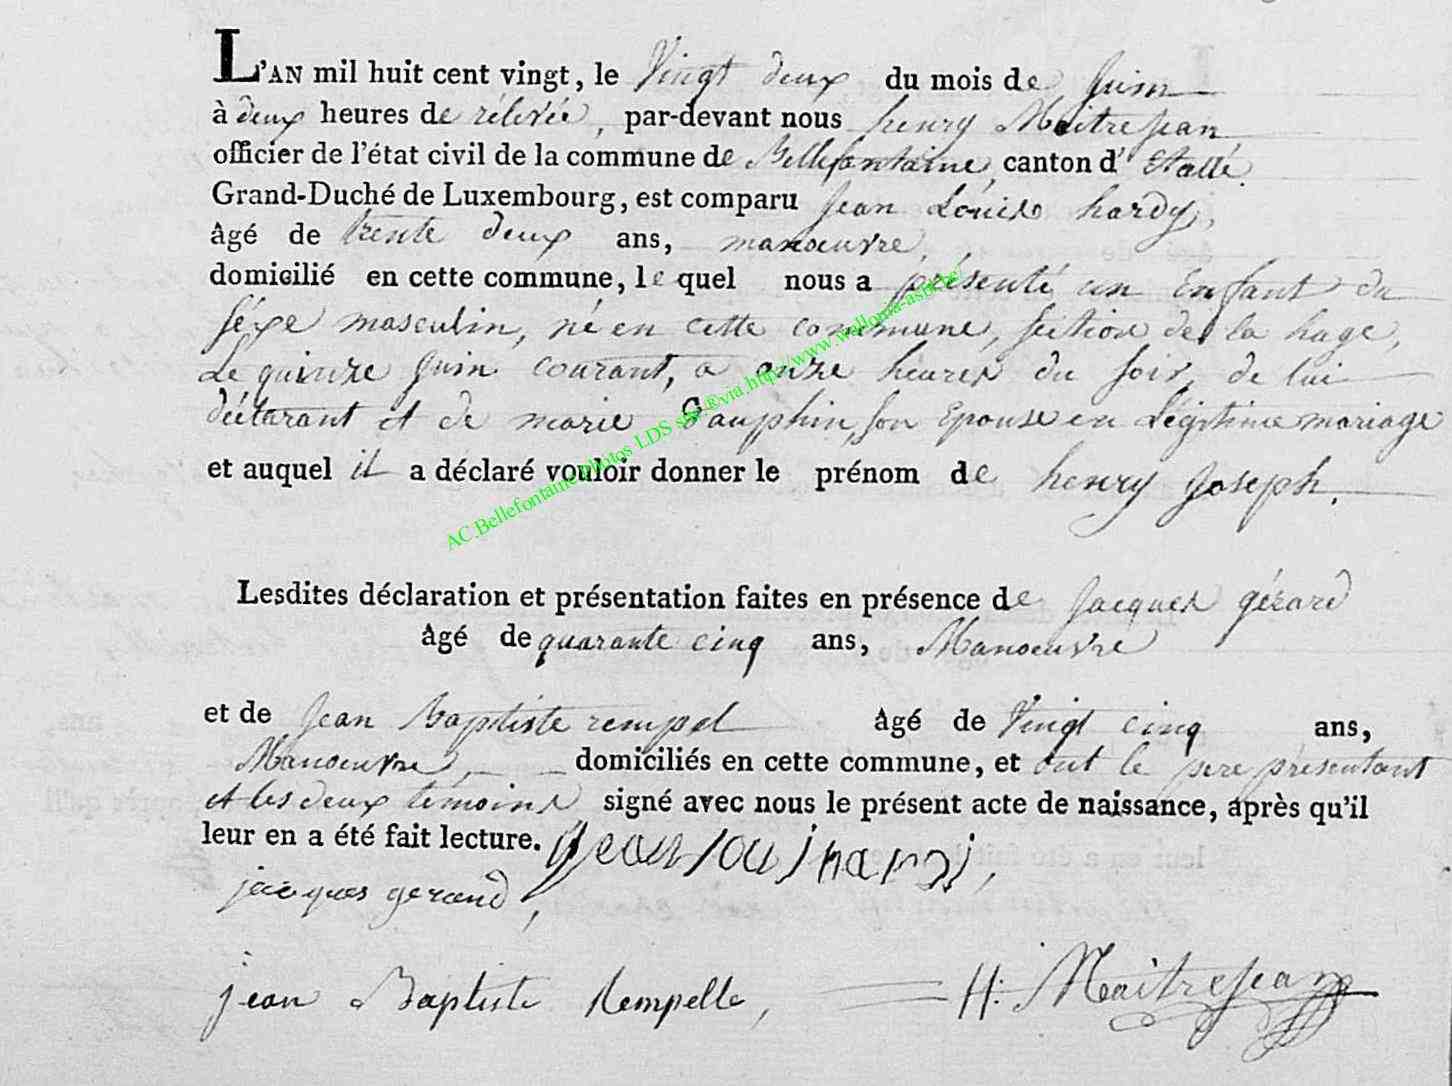 L'AN mil huit cent vingt, le Vingt deux du mois de Juin
à deux heures de rélévée, par-devant nous henry Maitrejean
officier de l'état civil de la commune de Bellefontaine, canton d'Etalle.
Grand-Duché de Luxembourg, est comparu Jean Louis hardy,
âgé de trente deux ans, manœuvre,
domicilié en cette commune, lequel nous a présenté un Enfant du
séxe masculin, né en cette commune, séction de la hage,
Le quinze Juin courant, a onze heures du soir, de lui
déclarant et de marie Dauphin, son Epouse en Légitime mariage
et auquel il a déclaré vouloir donner le prénom de henry Joseph.
AC.Bellefontaine photos LDS sur ®via.http://www.wallonia-asbl.be/
Lesdites déclaration et présentation faites en présence de Jacques gérard
âgé de quarante cinq ans, Manoeuvre
et de Jean Baptiste rempel âgé de Vingt cinq ans,
Manoeuvre, domiciliés en cette commune, et ont le pere présentant
et les deux témoins signé avec nous le présent acte de naissance, après qu'il
leur en a été fait lecture. Jean loui hardi,
jacques gerard,
jean Baptiste Rempelle, H. Maitrejean